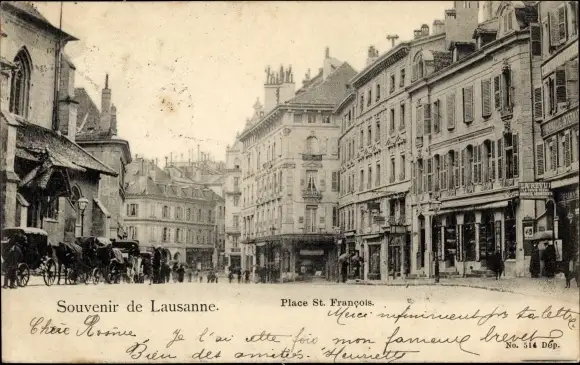 Souvenir de Lausanne.
Place St. François.
Merci infiniment pr ta lettre
Je l'ai cette fois mon fameux brevet!
Bien des amitiés. Henriette
No. 514 Dép.